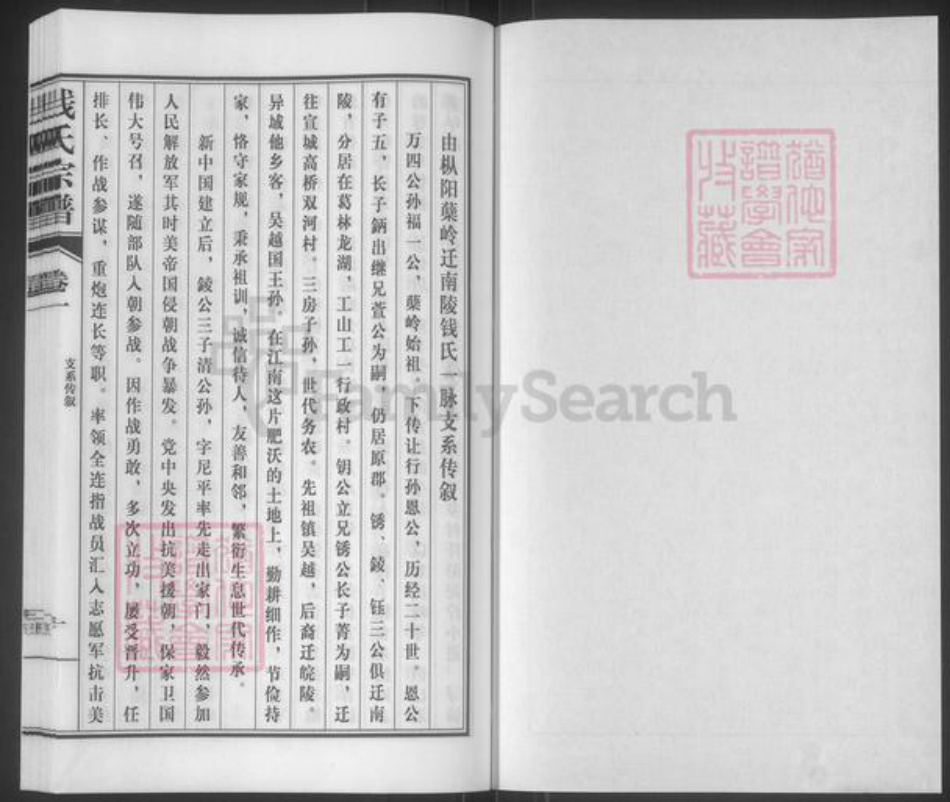 由枞阳蘖岭迁南陵钱氏一脉支系传叙
万四公孙福一公，蘖岭始祖。下传让行孙恩公，历经二十世。恩公
有子五，长子鈵出继兄萱公为嗣，仍居原郡。锈、錂、钰三公俱迁南
陵，分居在葛林龙湖，工山工一行政村。钥公立兄锈公长子菁为嗣，迁
往宣城高桥双河村。三房子孙，世代务农。先祖镇吴越，后裔迁皖陵。
异域他乡客，吴越国王孙。在江南这片肥沃的土地上，勤耕细作，节俭持
家，恪守家规，秉承祖训，诚信待人，友善和邻，繁衍生息世代传承。
新中国建立后，錂公三子清公孙，字尼平率先走出家门，毅然参加
人民解放军其时美帝国侵朝战争暴发。党中央发出抗美援朝，保家卫国
伟大号召，遂随部队入朝参战。因作战勇敢，多次立功，屡受晋升，任
排长、作战参谋，重炮连长等职。率领全连指战员汇入志愿军抗击美
钱氏宗谱
卷一
支系传叙
一
猶他家
譜學會
收藏
FamilySearch